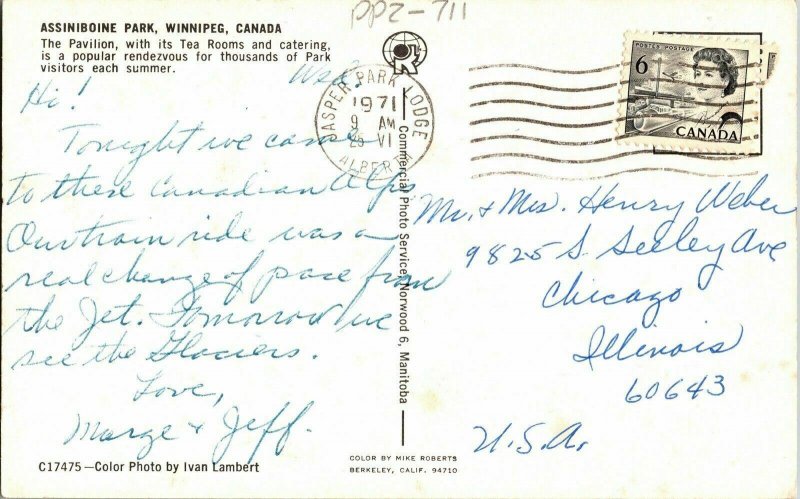 PP2-711
ASSINIBOINE PARK, WINNIPEG, CANADA
The Pavilion, with its Tea Rooms and catering,
is a popular rendezvous for thousands of Park
visitors each summer.
Wed.
Hi!
Tonight we came
to these Canadian Alps
Our train ride was a
real change of pace from
the Jet. Tomorrow we
see the Glaciers.
Love,
Marge & Jeff.
C17475—Color Photo by Ivan Lambert
JASPER PARK LODGE
1971
9 AM
25 VI
ALBERTA
Commercial Photo Service, Norwood 6, Manitoba
COLOR BY MIKE ROBERTS
BERKELEY, CALIF. 94710
POSTES POSTAGE
6
CANADA
Mr. & Mrs. Henry Weber
9825 S. Seeley Ave
Chicago
Illinois
60643
U.S.A.